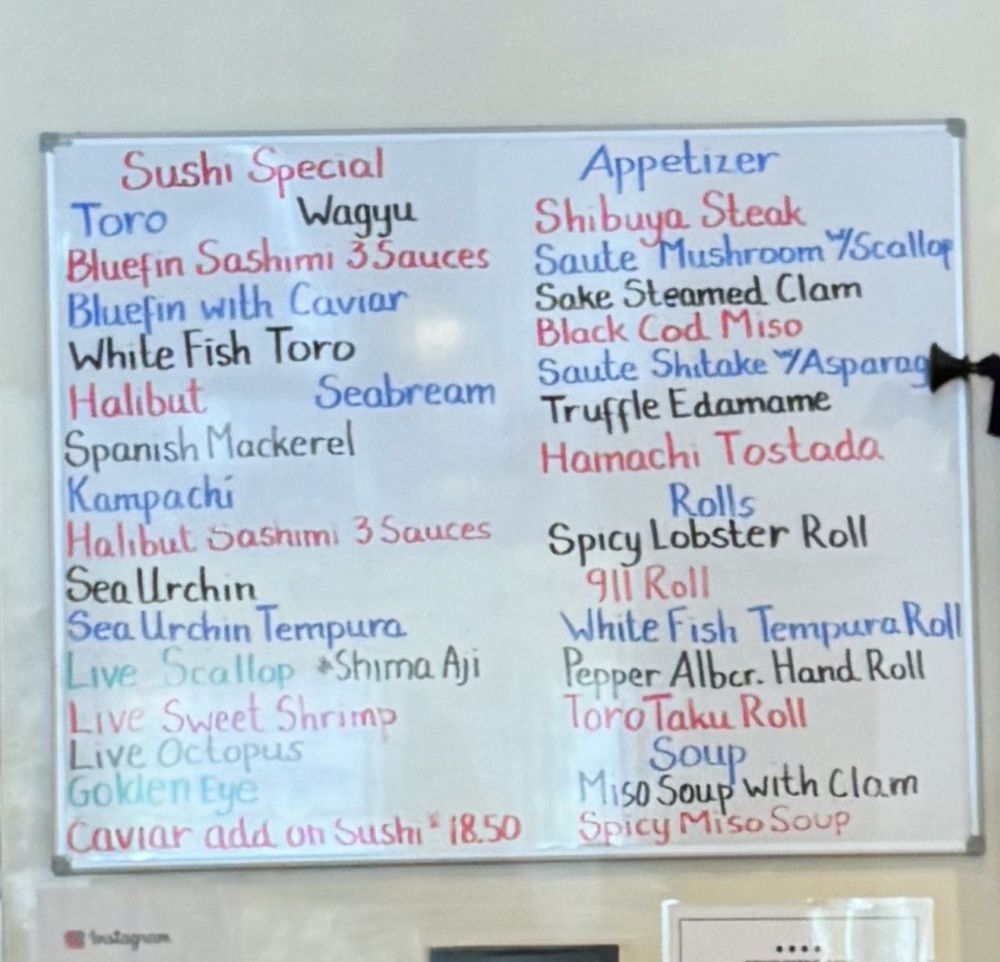 Sushi Special
Toro Wagyu
Bluefin Sashimi 3 Sauces
Bluefin with Caviar
White Fish Toro
Halibut Seabream
Spanish Mackerel
Kampachi
Halibut Sashimi 3 Sauces
Sea Urchin
Sea Urchin Tempura
Live Scallop *Shima Aji
Live Sweet Shrimp
Live Octopus
Golden Eye
Caviar add on Sushi $18.50
Appetizer
Shibuya Steak
Saute Mushroom w/Scallop
Sake Steamed Clam
Black Cod Miso
Saute Shitake w/Asparag
Truffle Edamame
Hamachi Tostada
Rolls
Spicy Lobster Roll
911 Roll
White Fish Tempura Roll
Pepper Albcr. Hand Roll
Toro Taku Roll
Soup
Miso Soup with Clam
Spicy Miso Soup
Instagram